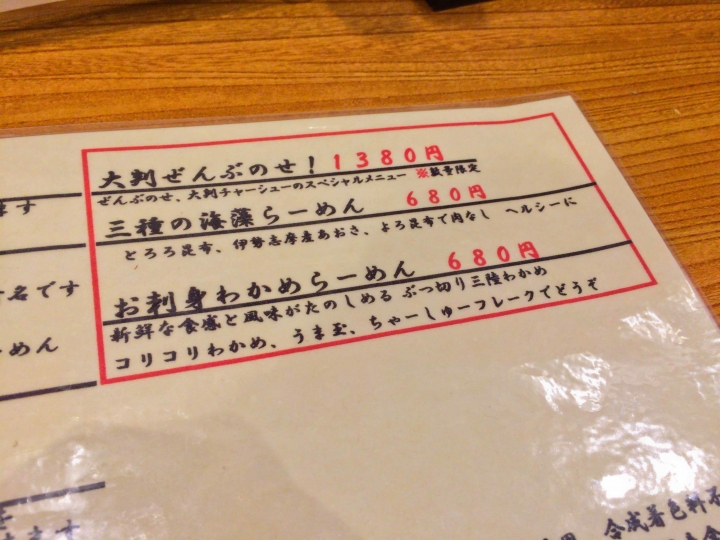 大判ぜんぶのせ! 1380円
ぜんぶのせ、大判チャーシューのスペシャルメニュー ※数量限定
三種の海藻らーめん 680円
とろろ昆布、伊勢志摩産あおさ、よろ昆布で肉なし ヘルシーに
お刺身わかめらーめん 680円
新鮮な食感と風味がたのしめる ぶつ切り三陸わかめ
コリコリわかめ、うま玉、ちゃーしゅーフレークでどうぞ
ます
名です
めん
ます
合成着色料不